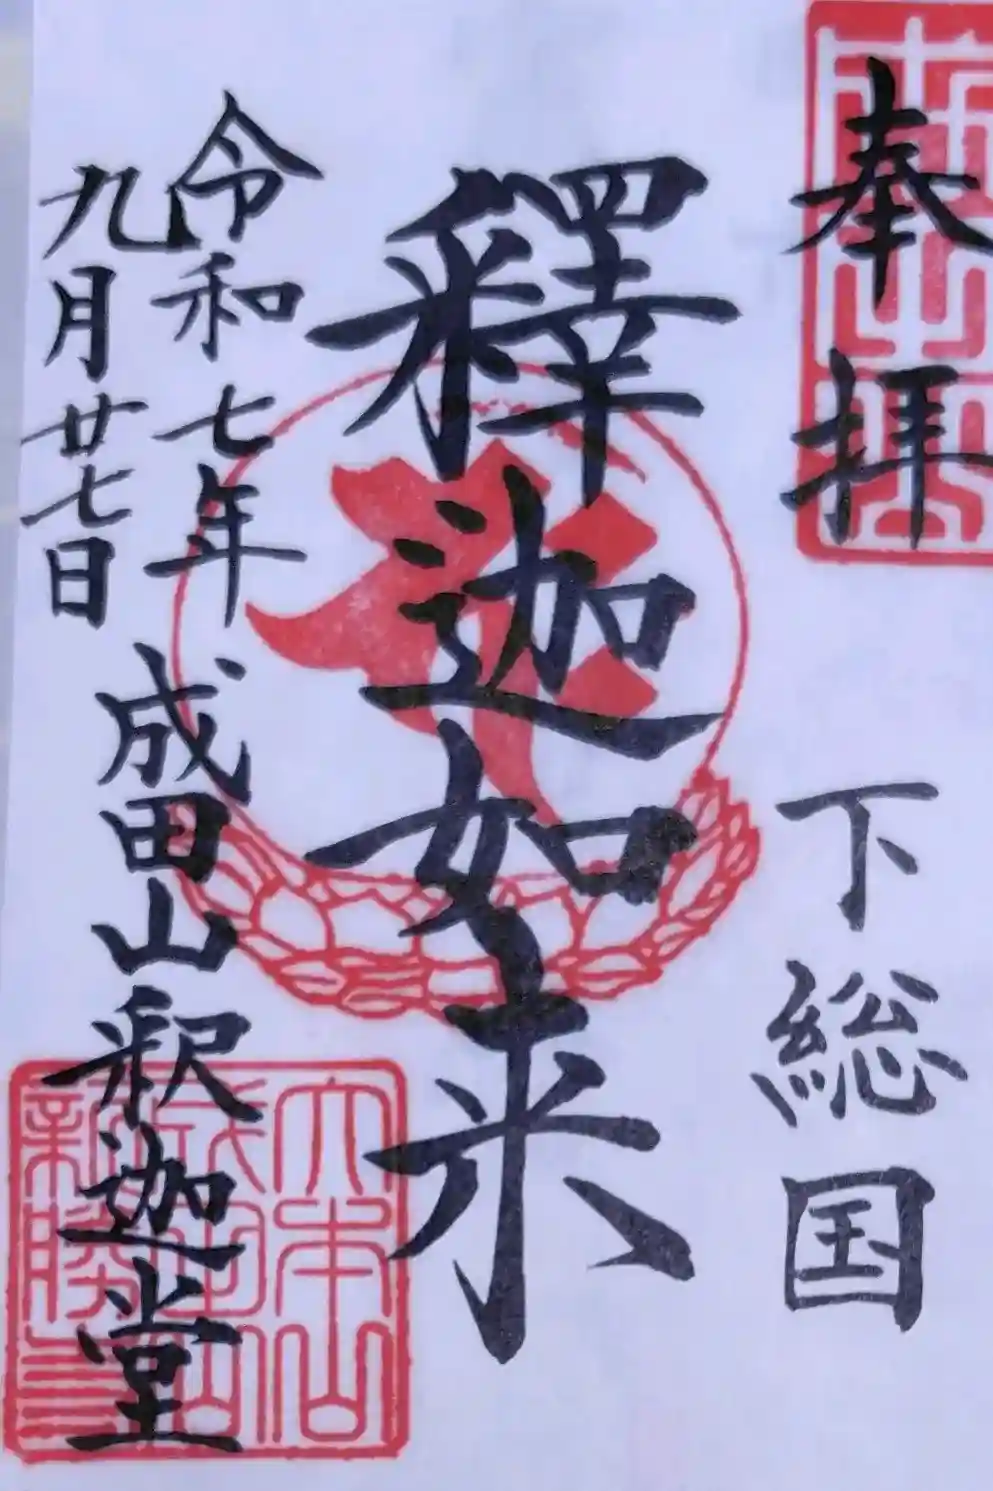 奉拝
下総国
釋迦如来
令和七年
九月廿七日
成田山釈迦堂
大本山
成田山
新勝寺